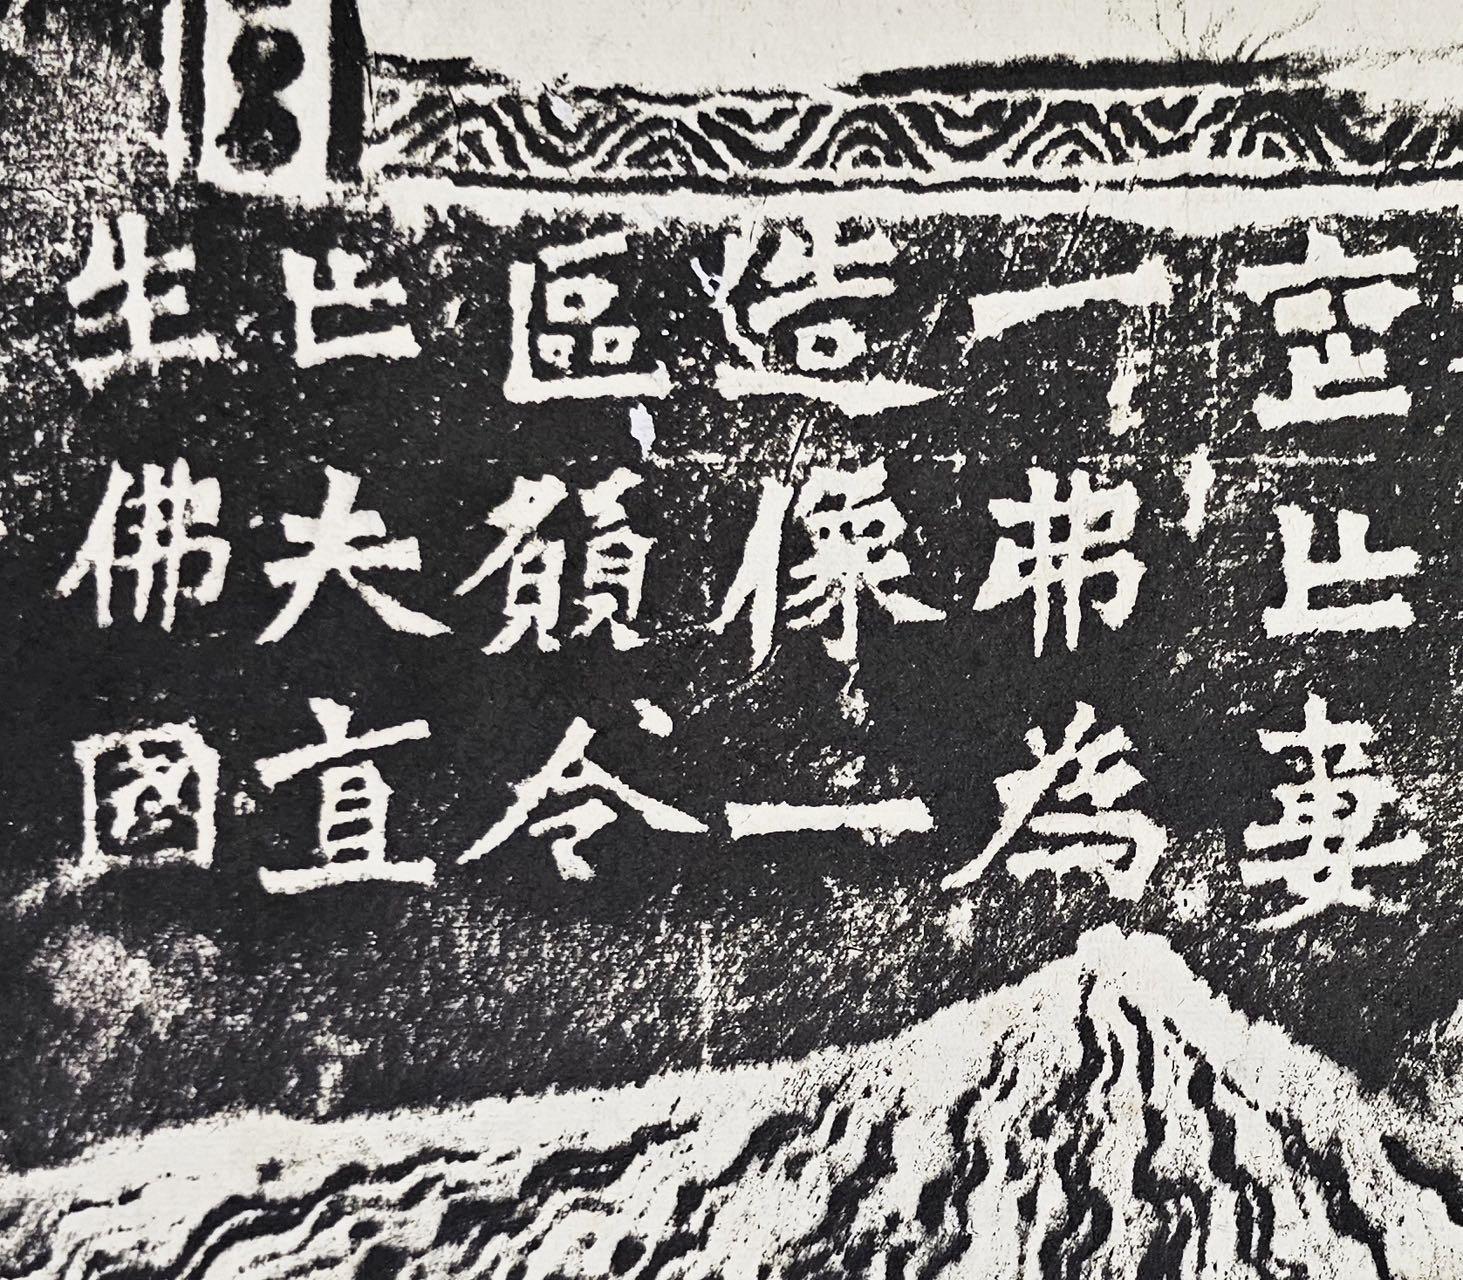 喪亡妻
一弗為
造像一
區願令
亡夫直
生佛國